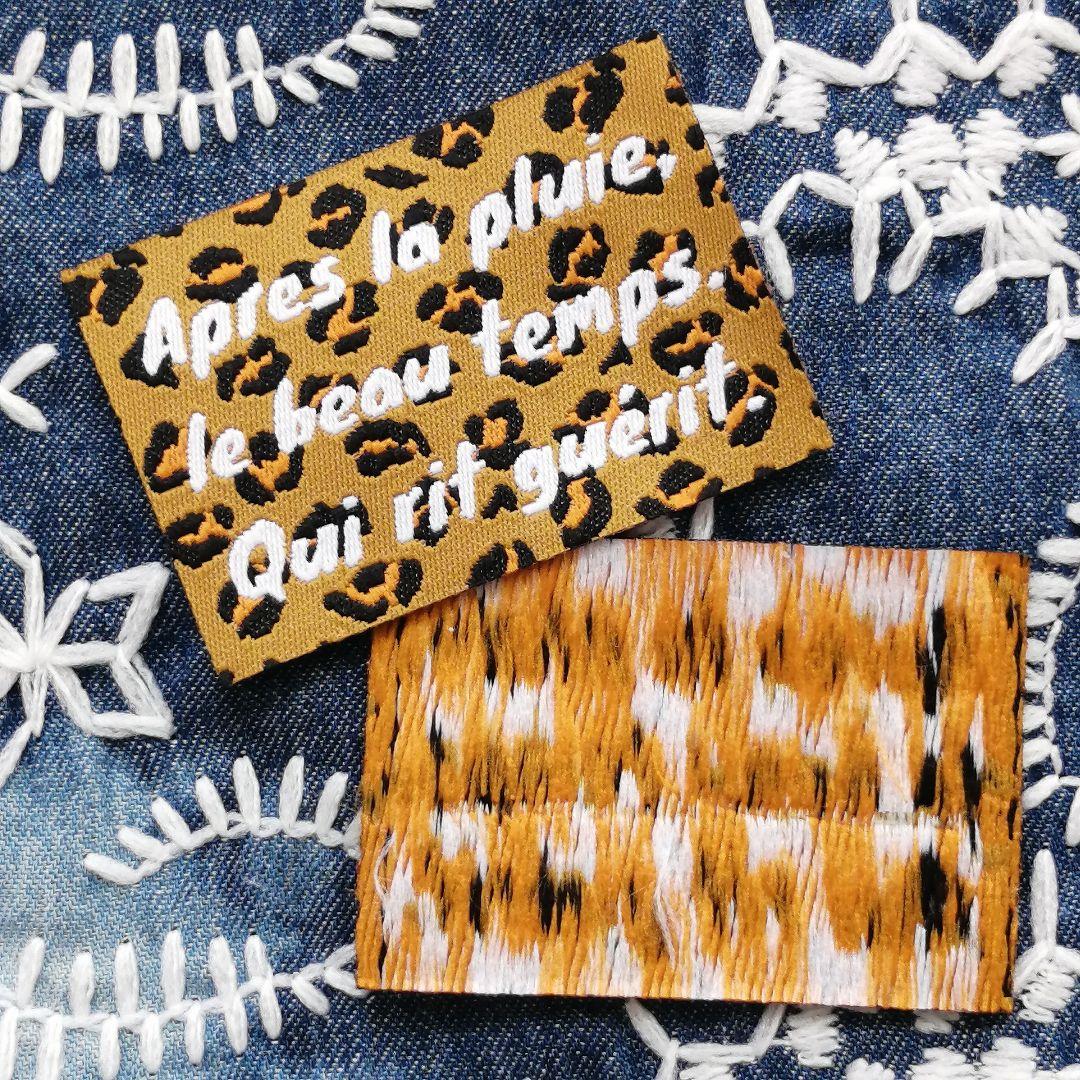 Apres la pluie,
le beau temps.
Qui rit guérit.